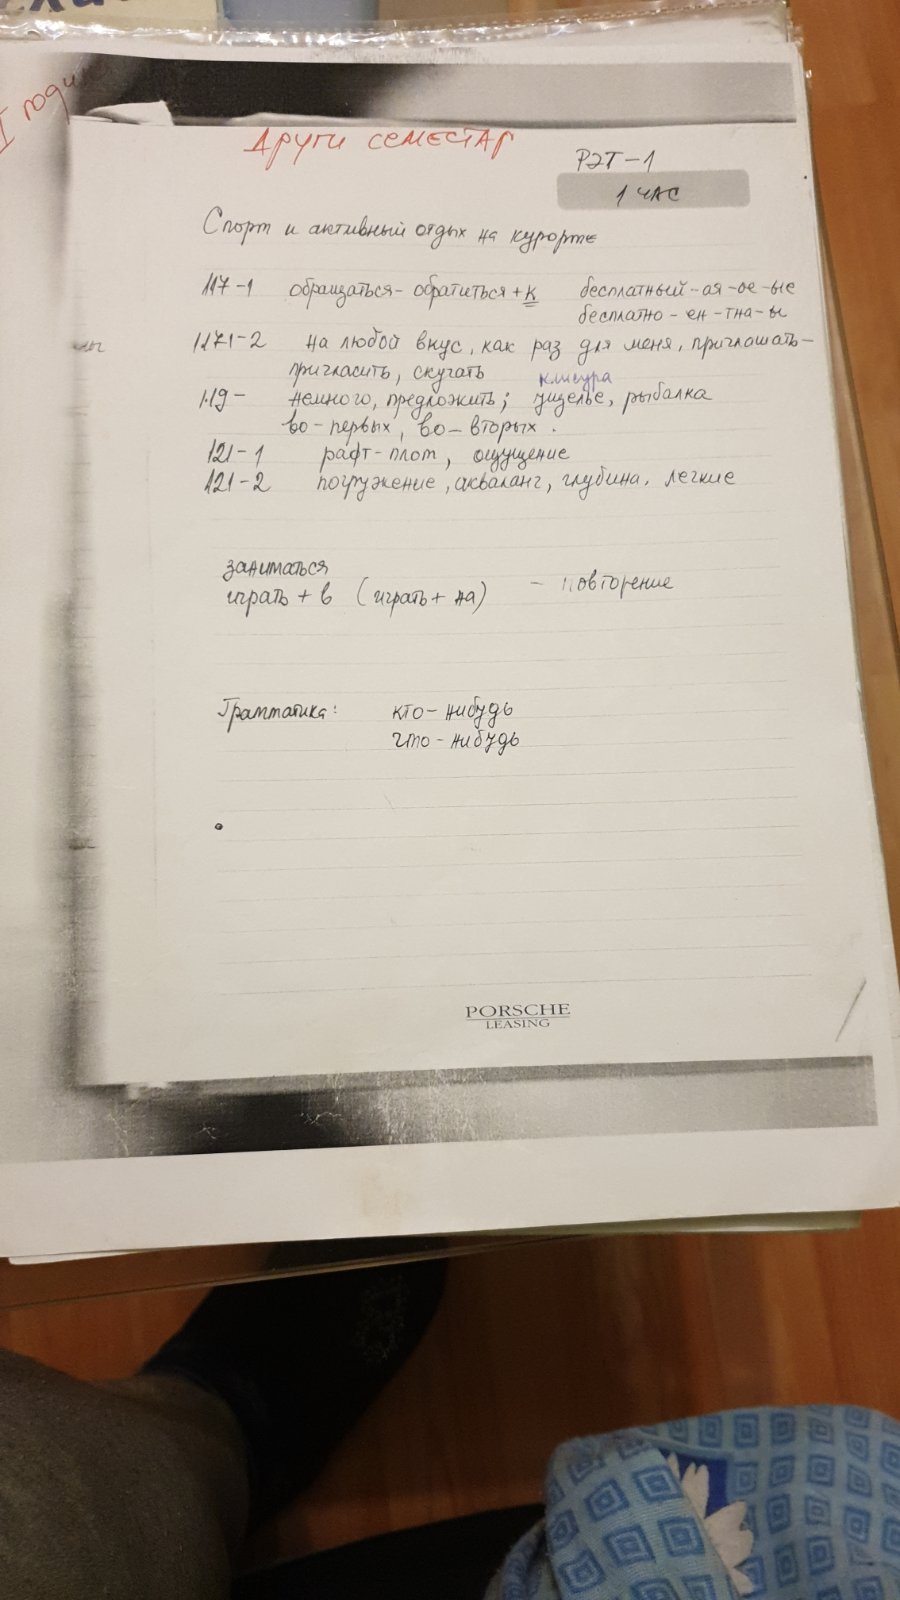 II годи
Други семестар
РЭТ-1
1 ЧАС
Спорт и активный отдых на курорте
117-1 обращаться- обратиться + к бесплатный -ая -ое -ые
бесплатно - ен - тна - ы
1171-2 на любой вкус, как раз для меня, приглашать-
пригласить, скучать
клисура
119- немного, предложить; ущелье, рыбалка
во-первых, во-вторых.
121-1 рафт-плот, ощущение
121-2 погружение, акваланг, глубина, легкие
заниматься
играть + в (играть + на) - повторение
Грамматика: кто-нибудь
что-нибудь
PORSCHE
LEASING